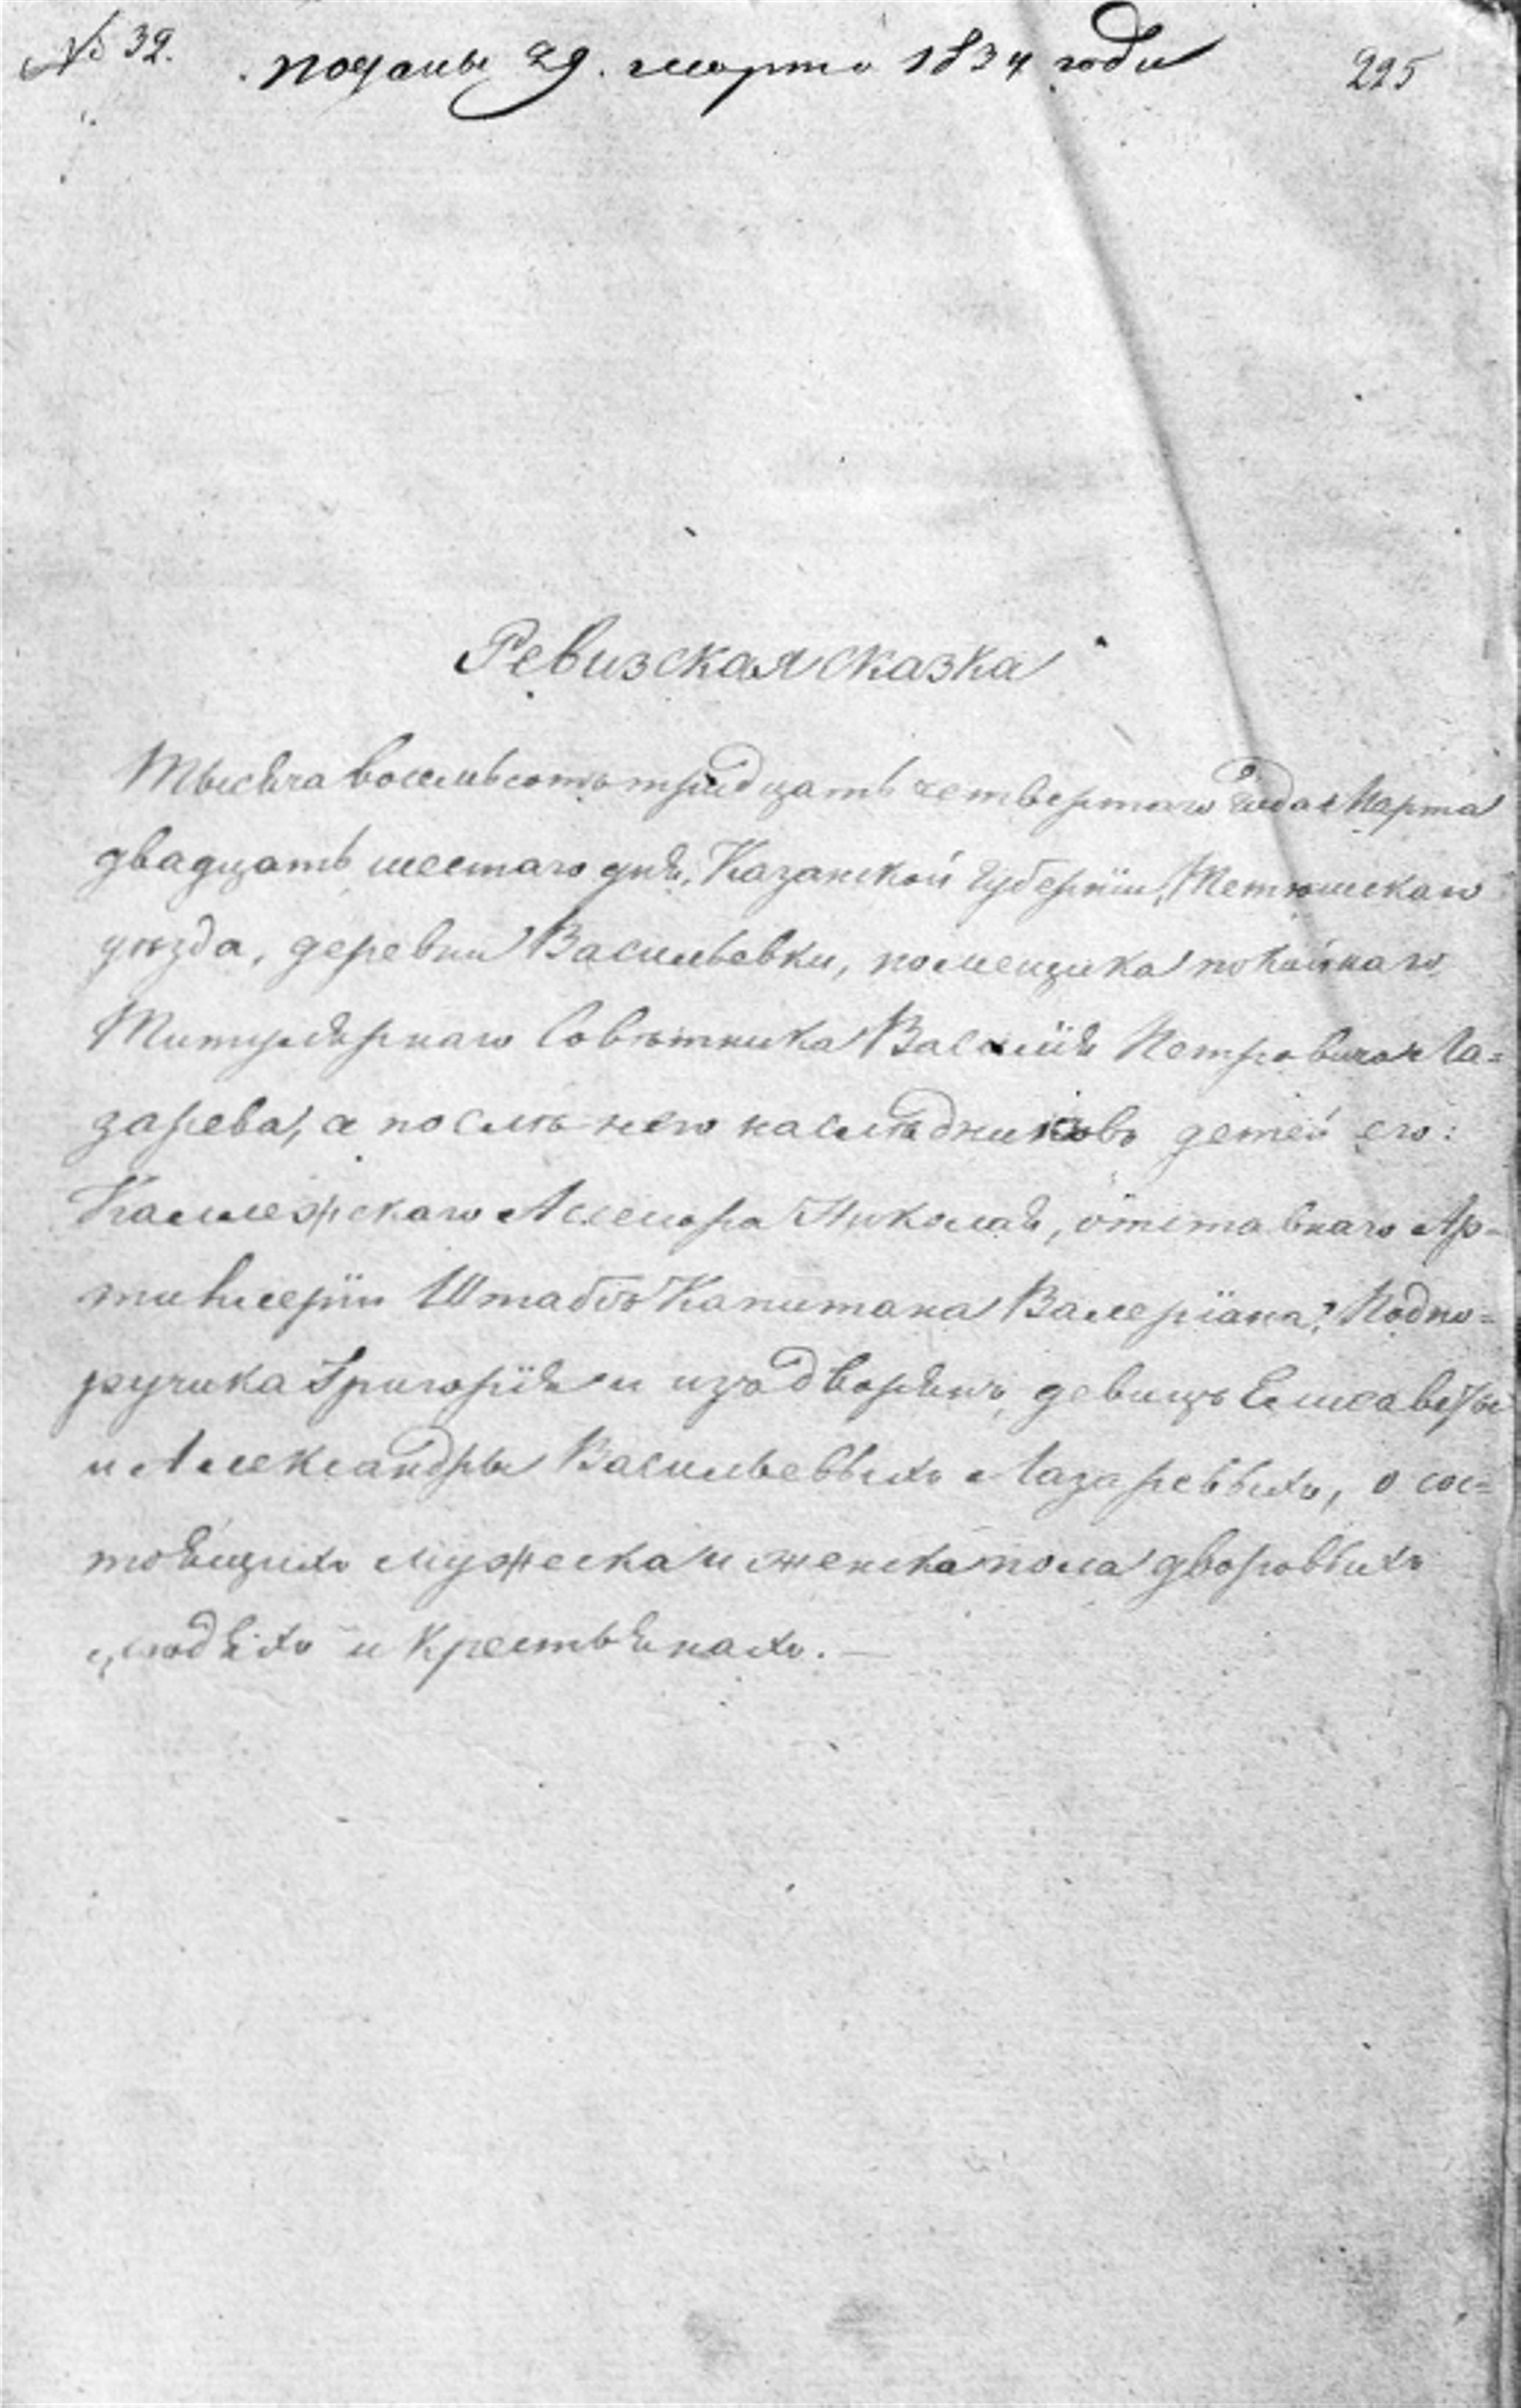 № 32. поданы 29. марта 1834 года 225
Ревизская сказка
Тысяча восемьсотъ тридцать четвертого года Марта
двадцать шестаго дня, Казанской Губернїи, Тетюшскаго
уѣзда, деревни Васильевки, помещика покойнаго
Титулярнаго Совѣтника Василїя Петровича Ла=
зарева, а послѣ него наслѣдниковъ детей его:
Коллежскаго Ассесора Николая, отставнаго Ар=
тиллерїи Штабсъ Капитана Валерїана, Подпо=
ручика Григорїя и изъ дворянъ девицъ Елисаветы
и Александры Васильевыхъ Лазаревыхъ, о сос=
тоящихъ мужеска и женска пола дворовыхъ
людяхъ и Крестьянахъ. —